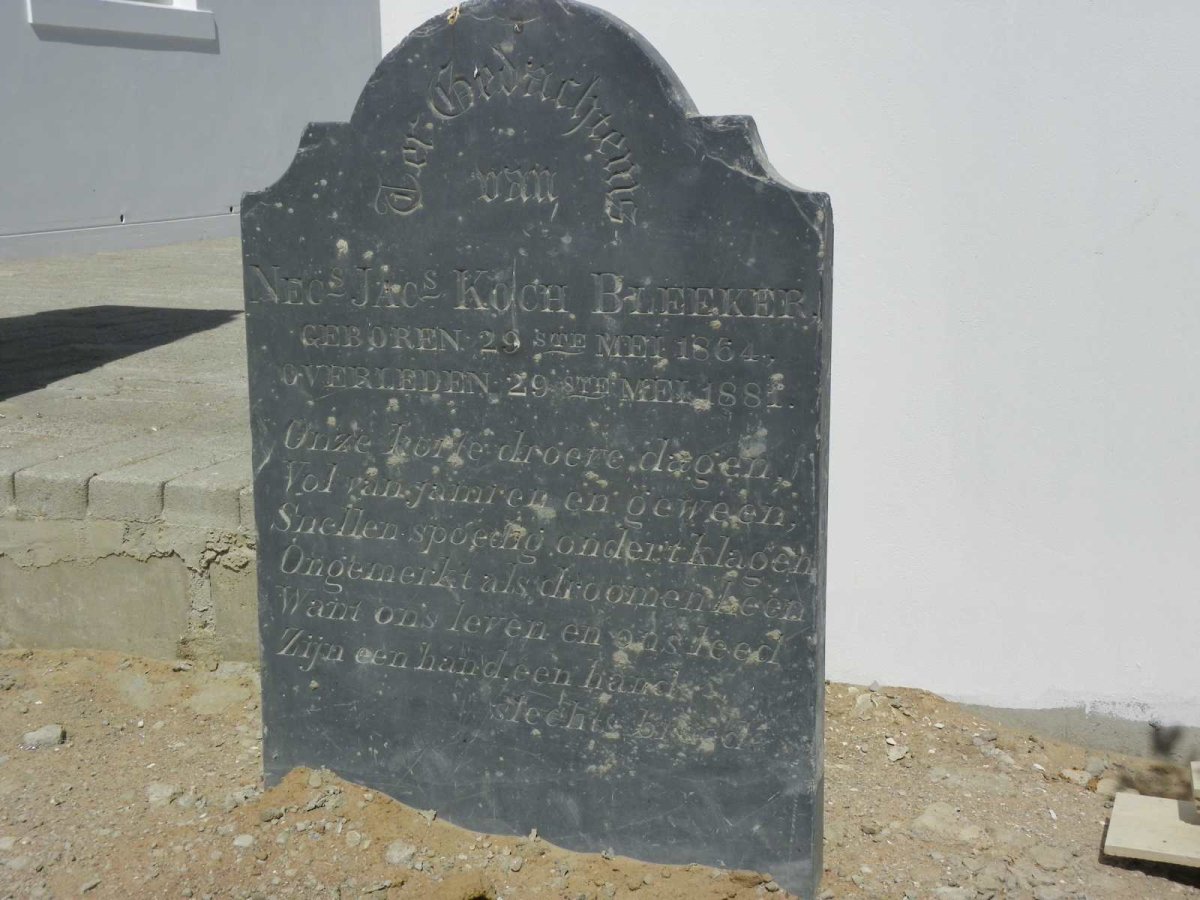 Ter Gedachtenis
van
NECS JACS KOCH BLEEKER.
GEBOREN 29 STE MEI 1864.,
OVERLEDEN 29 STE MEI 1881.
Onze korte droere dagen,
Vol van jamren en geween,
Snellen spoedig ondert klagen
Ongemerkt als droomen heen
Want ons leven en ons leed
Zijn een hand, een hand
slechts breed